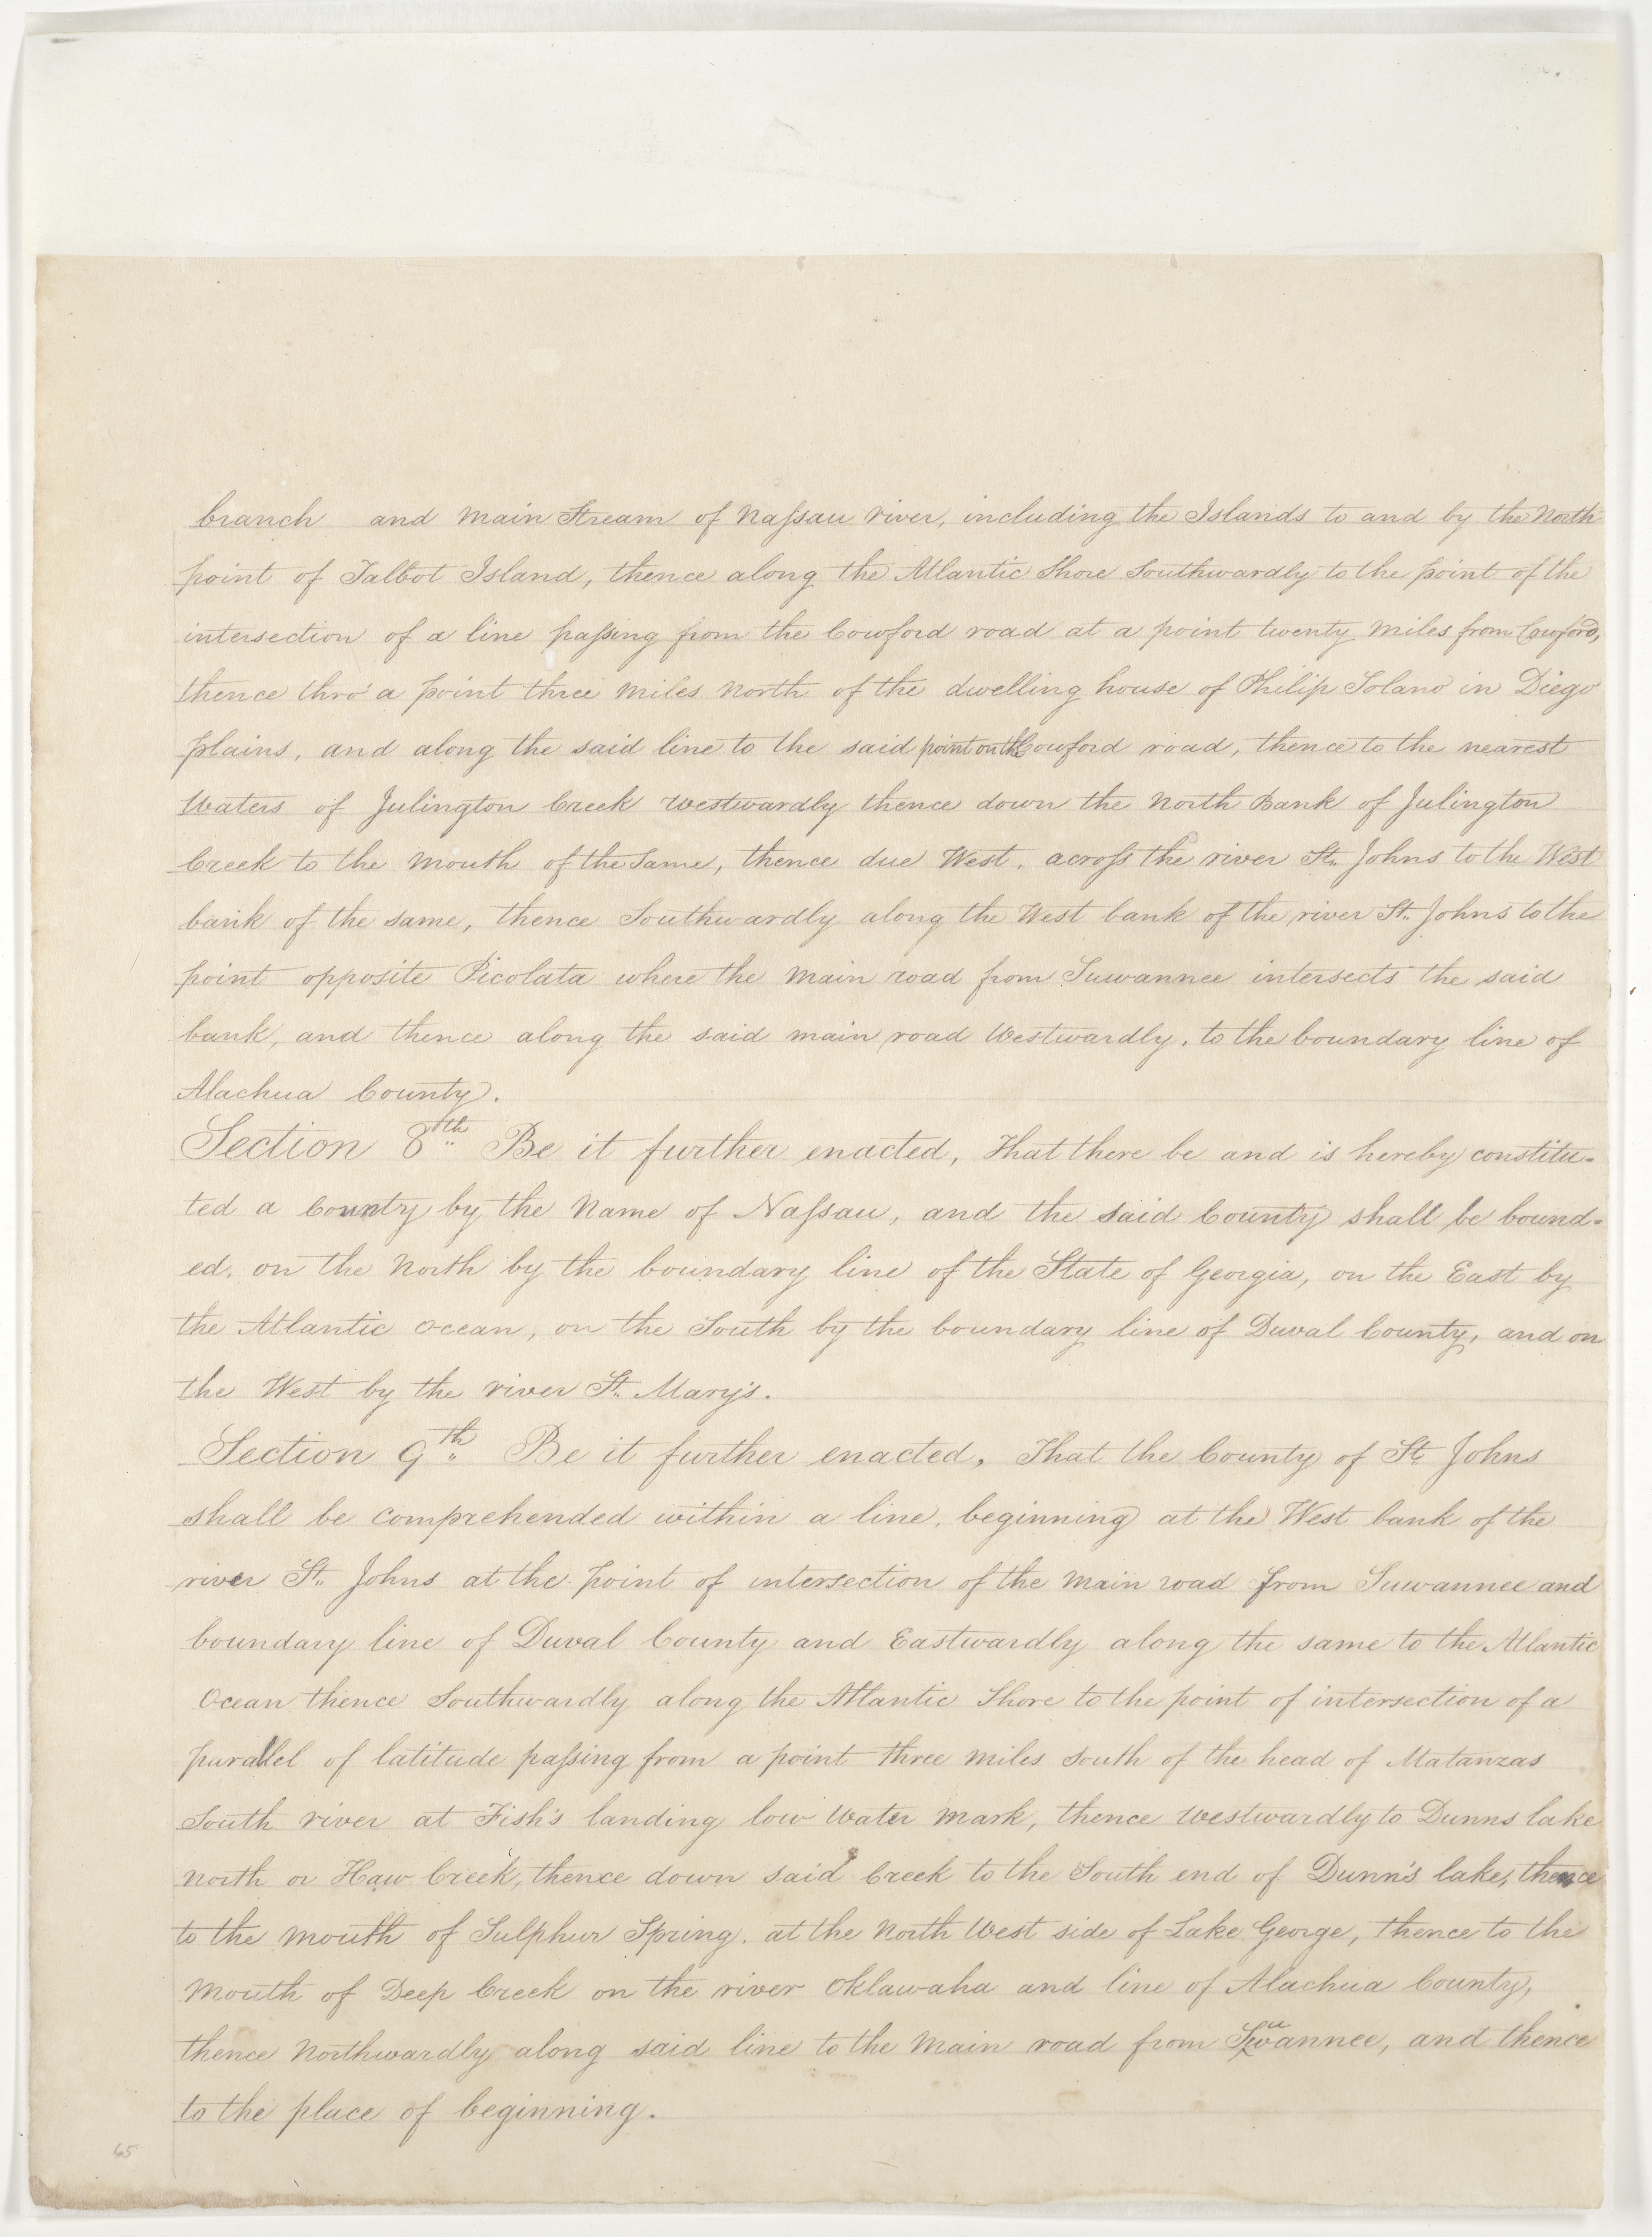 branch and main Stream of Naſsau river, including the Islands to and by the North
point of Talbot Island, thence along the Atlantic Shore Southwardly to the point of the
intersection of a line paſsing from the Cowford road at a point twenty miles from Cowford,
thence thro' a point three miles North of the dwelling house of Philip Solano in Diego
plains, and along the said line to the said point on the Cowford road, thence to the nearest
Waters of Julington Creek westwardly thence down the North Bank of Julington
Creek to the mouth of the Same, thence due West, acroſs the river St. Johns to the West
bank of the same, thence Southwardly along the West bank of the river St. Johns to the
point opposite Picolata where the main road from Suwannee intersects the said
bank, and thence along the said main road Westwardly, to the boundary line of
Alachua County.
Section 8th Be it further enacted, That there be and is hereby constitu-
ted a County by the Name of Naſsau, and the said County shall be bound-
ed, on the North by the boundary line of the State of Georgia, on the East by
the Atlantic Ocean, on the South by the boundary line of Duval County, and on
the West by the river St. Mary's.
Section 9th Be it further enacted, That the County of St. Johns
shall be comprehended within a line, beginning at the West bank of the
river St. Johns at the point of intersection of the main road from Suwannee and
boundary line of Duval County and Eastwardly along the same to the Atlantic
Ocean thence Southwardly along the Atlantic Shore to the point of intersection of a
parallel of latitude paſsing from a point three miles south of the head of Matanzas
South river at Fish's landing low water mark, thence westwardly to Dunns lake
north or Haw Creek, thence down said Creek to the South end of Dunn's lake, thence
to the mouth of Sulphur Spring, at the North West side of Lake George, thence to the
Mouth of Deep Creek on the river Oklawaha and line of Alachua County,
thence Northwardly along said line to the main road from Suwannee, and thence
to the place of beginning.
45